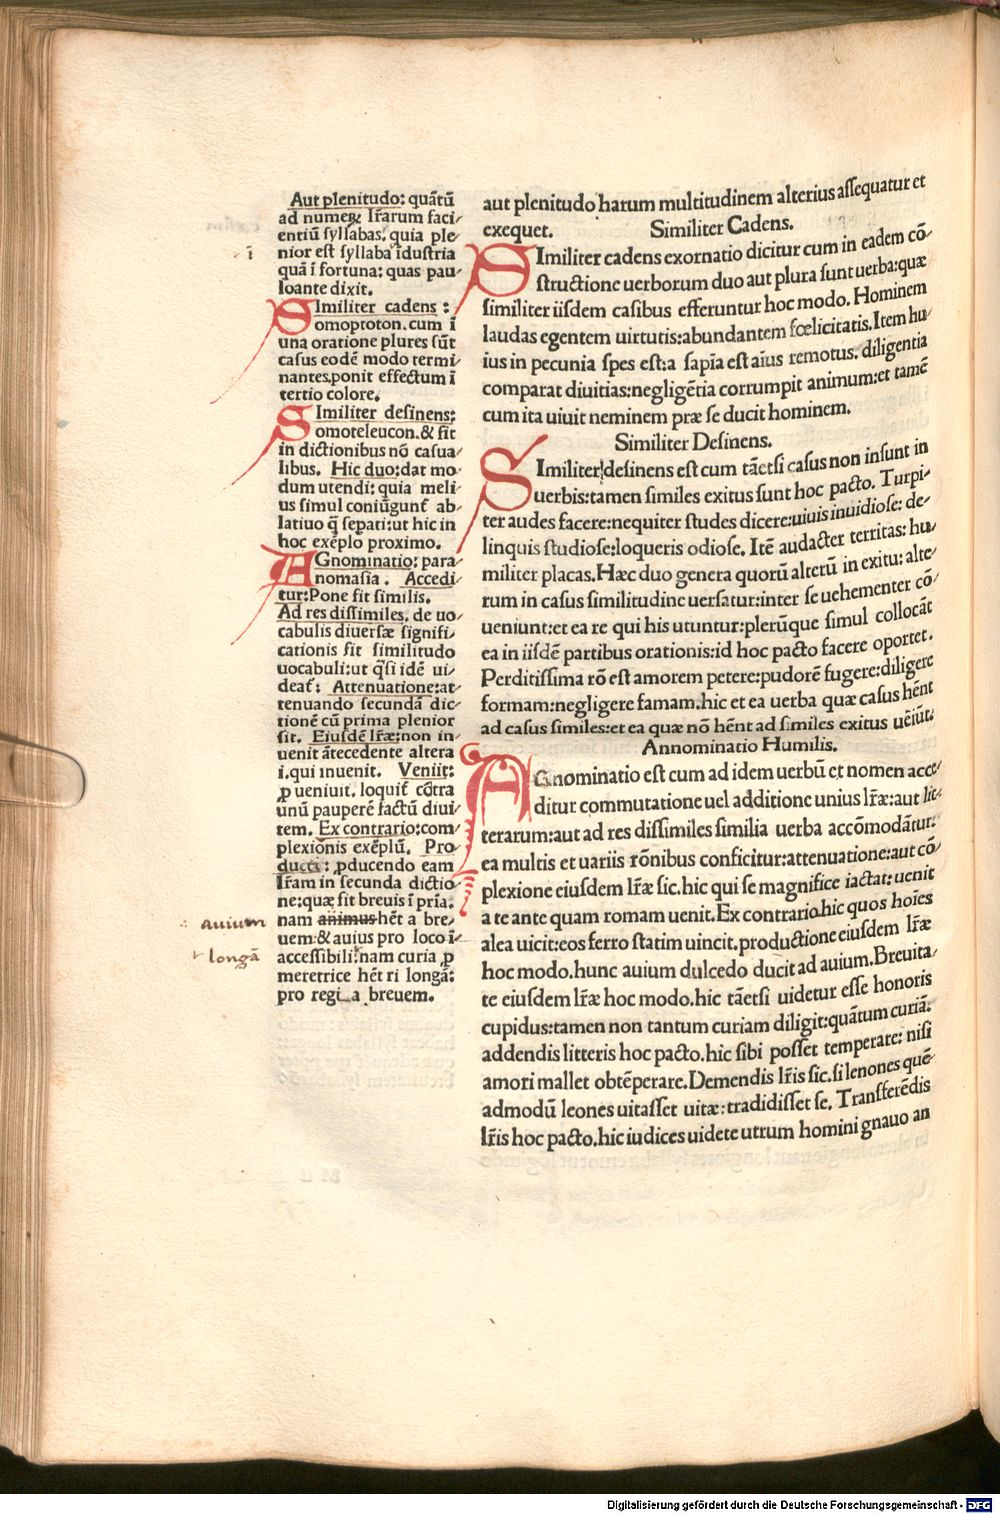 Aut plenitudo: quãtũ
ad numeꝝ lr̃arum faci-
entiũ syllabas. quia ple-
nior est syllaba ĩdustria
quã ĩ fortuna: quas pau-
loante dixit.
SImiliter cadens:
omoptoton. cum ĩ
una oratione plures sũt
casus eodẽ modo termi-
nantes. ponit effectum ĩ
tertio colore.
SImiliter desinens:
omoteleucon. & fit
in dictionibus nõ casua-
libus. Hic duo: dat mo-
dum utendi: quia meli-
us simul coniũgunt̃ ab-
latiuo q̃ sepati: ut hic in
hoc exẽplo proximo.
AGnominatio: para-
nomasia. Accedi-
tur: Pone fit similis.
Ad res dissimiles. de uo-
cabulis diuersæ signifi-
cationis fit similitudo
uocabuli: ut q̃si idẽ ui-
deat̃: Attenuatione: at-
tenuando secundã dic-
tionẽ cũ prima plenior
sit. Eiusdẽ lr̃æ: non in-
uenit ãtecedente altera
i. qui inuenit. Venit:
ꝑ ueniuit. loquit̃ cõtra
unũ pauperẽ factũ diui-
tem. Ex contrario: com-
plexionis exẽplũ. Pro-
ducti: ꝓducendo eam
lr̃am in secunda dictio-
ne: quæ fit breuis ĩ pria.
nam animus hẽt a bre-
uem: & auius pro loco ĩ-
accessibili: nam curia ꝓ
meretrice hẽt ri longã:
pro regia breuem.
ĩ
auium
longã
aut plenitudo harum multitudinem alterius assequatur et
exequet. Similiter Cadens.
SImiliter cadens exornatio dicitur cum in eadem cõ-
structione uerborum duo aut plura sunt uerba: quæ
similiter iisdem casibus efferuntur hoc modo. Hominem
laudas egentem uirtutis: abundantem fœlicitatis. Item hu-
ius in pecunia spes est: a sapĩa est aĩus remotus. diligentia
comparat diuitias: negligẽtia corrumpit animum: et tamẽ
cum ita uiuit neminem præ se ducit hominem.
Similiter Desinens.
SImiliter desinens est cum tãetsi casus non insunt in
uerbis: tamen similes exitus sunt hoc pacto. Turpi-
ter audes facere: nequiter studes dicere: uiuis inuidiose: de-
linquis studiose: loqueris odiose. Itẽ audacter territas: hu-
militer placas. Hæc duo genera quorũ alterũ in exitu: alte-
rum in casus similitudine uersatur: inter se uehementer cõ-
ueniunt: et ea re qui his utuntur: plerũque simul collocãt
ea in iisdẽ partibus orationis: id hoc pacto facere oportet.
Perditissima rõ est amorem petere: pudorẽ fugere: diligere
formam: negligere famam. hic et ea uerba quæ casus hẽnt
ad casus similes: et ea quæ nõ hẽnt ad similes exitus ueĩũt.
Annominatio Humilis.
AGnominatio est cum ad idem uerbũ et nomen acce-
ditur commutatione uel additione unius lr̃æ: aut lit-
terarum: aut ad res dissimiles similia uerba accõmodãtur.
ea multis et uariis rõnibus conficitur: attenuatione: aut cõ-
plexione eiusdem lr̃æ sic. hic qui se magnifice iactat: uenit
a te ante quam romam uenit. Ex contrario. hic quos hoĩes
alea uicit: eos ferro statim uincit. productione eiusdem lr̃æ
hoc modo. hunc auium dulcedo ducit ad auium. Breuita-
te eiusdem lr̃æ hoc modo. hic tãetsi uidetur esse honoris
cupidus: tamen non tantum curiam diligit: quãtum curiã.
addendis litteris hoc pacto. hic sibi posset temperare: nisi
amori mallet obtẽperare. Demendis lr̃is sic. si lenones quẽ-
admodũ leones uitasset uitæ: tradidisset se. Transferẽdis
lr̃is hoc pacto. hic iudices uidete utrum homini gnauo an
Digitalisierung gefördert durch die Deutsche Forschungsgemeinschaft - DFG